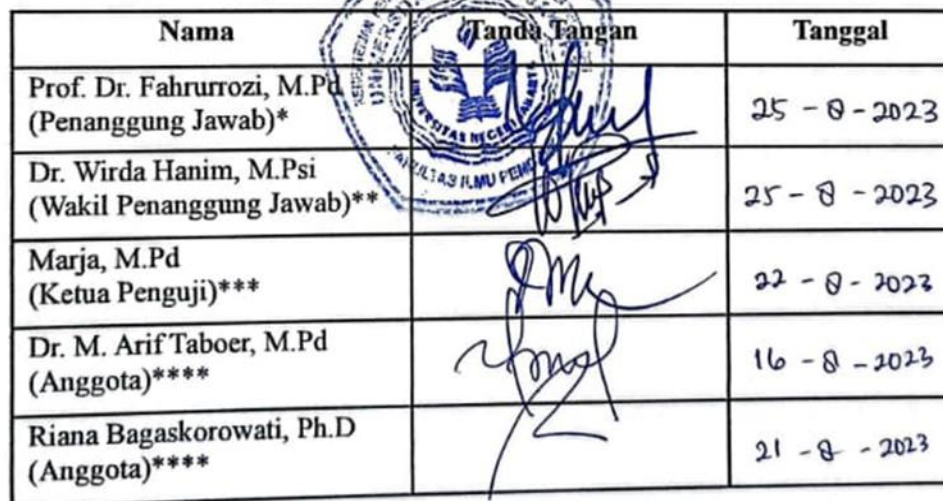 Nama Tanda Tangan Tanggal
Prof. Dr. Fahrurrozi, M.Pd
(Penanggung Jawab)* 25 - 8 - 2023
Dr. Wirda Hanim, M.Psi
(Wakil Penanggung Jawab)** 25 - 8 - 2023
Marja, M.Pd
(Ketua Penguji)*** 22 - 8 - 2023
Dr. M. Arif Taboer, M.Pd
(Anggota)**** 16 - 8 - 2023
Riana Bagaskorowati, Ph.D
(Anggota)**** 21 - 8 - 2023
UNIVERSITAS NEGERI
FAKULTAS ILMU